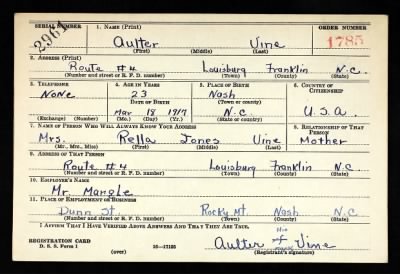 SERIAL NUMBER 1. NAME (Print) ORDER NUMBER
2961 Aulter Vine 1785
(First) (Middle) (Last)
2. ADDRESS (Print)
Route #4 Louisburg Franklin N.C.
(Number and street or R. F. D. number) (Town) (County) (State)
3. TELEPHONE 4. AGE IN YEARS 5. PLACE OF BIRTH 6. COUNTRY OF CITIZENSHIP
None 23 Nash
DATE OF BIRTH (Town or county)
Mar 18 1917 N.C. U.S.A.
(Exchange) (No.) (Mo.) (Day) (Yr.) (State or country)
7. NAME OF PERSON WHO WILL ALWAYS KNOW YOUR ADDRESS 8. RELATIONSHIP OF THAT PERSON
Mrs. Rella Jones Vine Mother
(Mr., Mrs., Miss) (First) (Middle) (Last)
9. ADDRESS OF THAT PERSON
Route #4 Louisburg Franklin N.C
(Number and street or R. F. D. number) (Town) (County) (State)
10. EMPLOYER'S NAME
Mr. Mangle
11. PLACE OF EMPLOYMENT OR BUSINESS
Dunn St. Rocky Mt. Nash N.C
(Number and street or R. F. D. number) (Town) (County) (State)
I AFFIRM THAT I HAVE VERIFIED ABOVE ANSWERS AND THAT THEY ARE TRUE.
REGISTRATION CARD
D. S. S. Form 1 (over) 16—17105
His
Aulter Vine
(Registrant's signature)